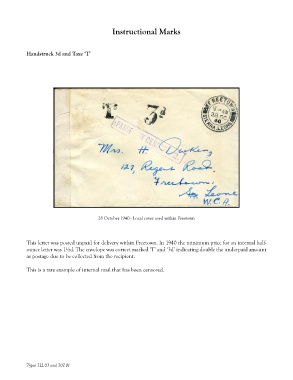 Instructional Marks
Handstruck 3d and Taxe 'T'
T 3d
FREETOWN
28 OC
40
SIERRA LEONE
Mrs. H
127, Regent Road,
Freetown.
Leone
W.C.A.
28 October 1940 - Local cover used within Freetown
This letter was posted unpaid for delivery within Freetown. In 1940 the minimum price for an internal half-
ounce letter was 1½d. The envelope was correct marked 'T' and '3d' indicating double the underpaid amount
as postage due to be collected from the recipient.
This is a rare example of internal mail that has been censored.